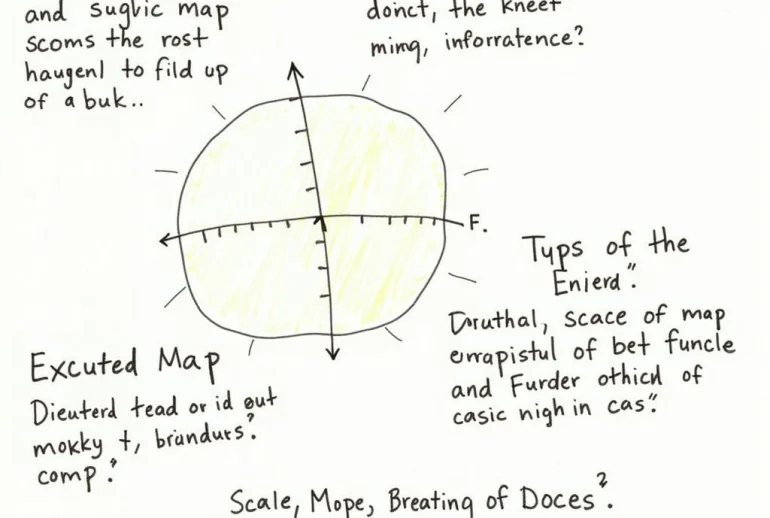 and suglic map
scoms the rost
haugenl to fild up
of a buk..
donct, the kneet
mimq, inforratence?
F.
Typs of the
Enierd".
Doruthal, scace of map
emapistul of bet funcle
and Furder othicd of
casic nighin cas".
Excuted Map
Dieuterd tead or id out
mokky t, brandurs?
comp?
Scale, Mope, Breating of Doces?.